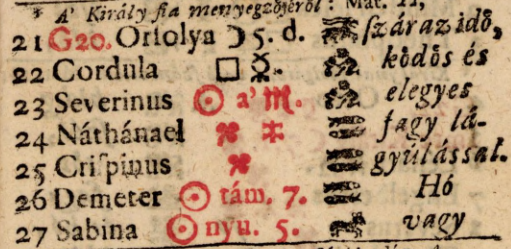 A' Király fia menyegzőjéről: Mat. 22,
21 G20. Orſolya ☽ 5. d. ſzáraz idő,
22 Cordula □ ☿. ködös és
23 Severinus ☉ a' ♏. elegyes
24 Náthánael fagy lá-
25 Criſpinus gyúláſſal.
26 Demeter ☉ tám. 7. Hó
27 Sabina ☉ nyu. 5. vagy